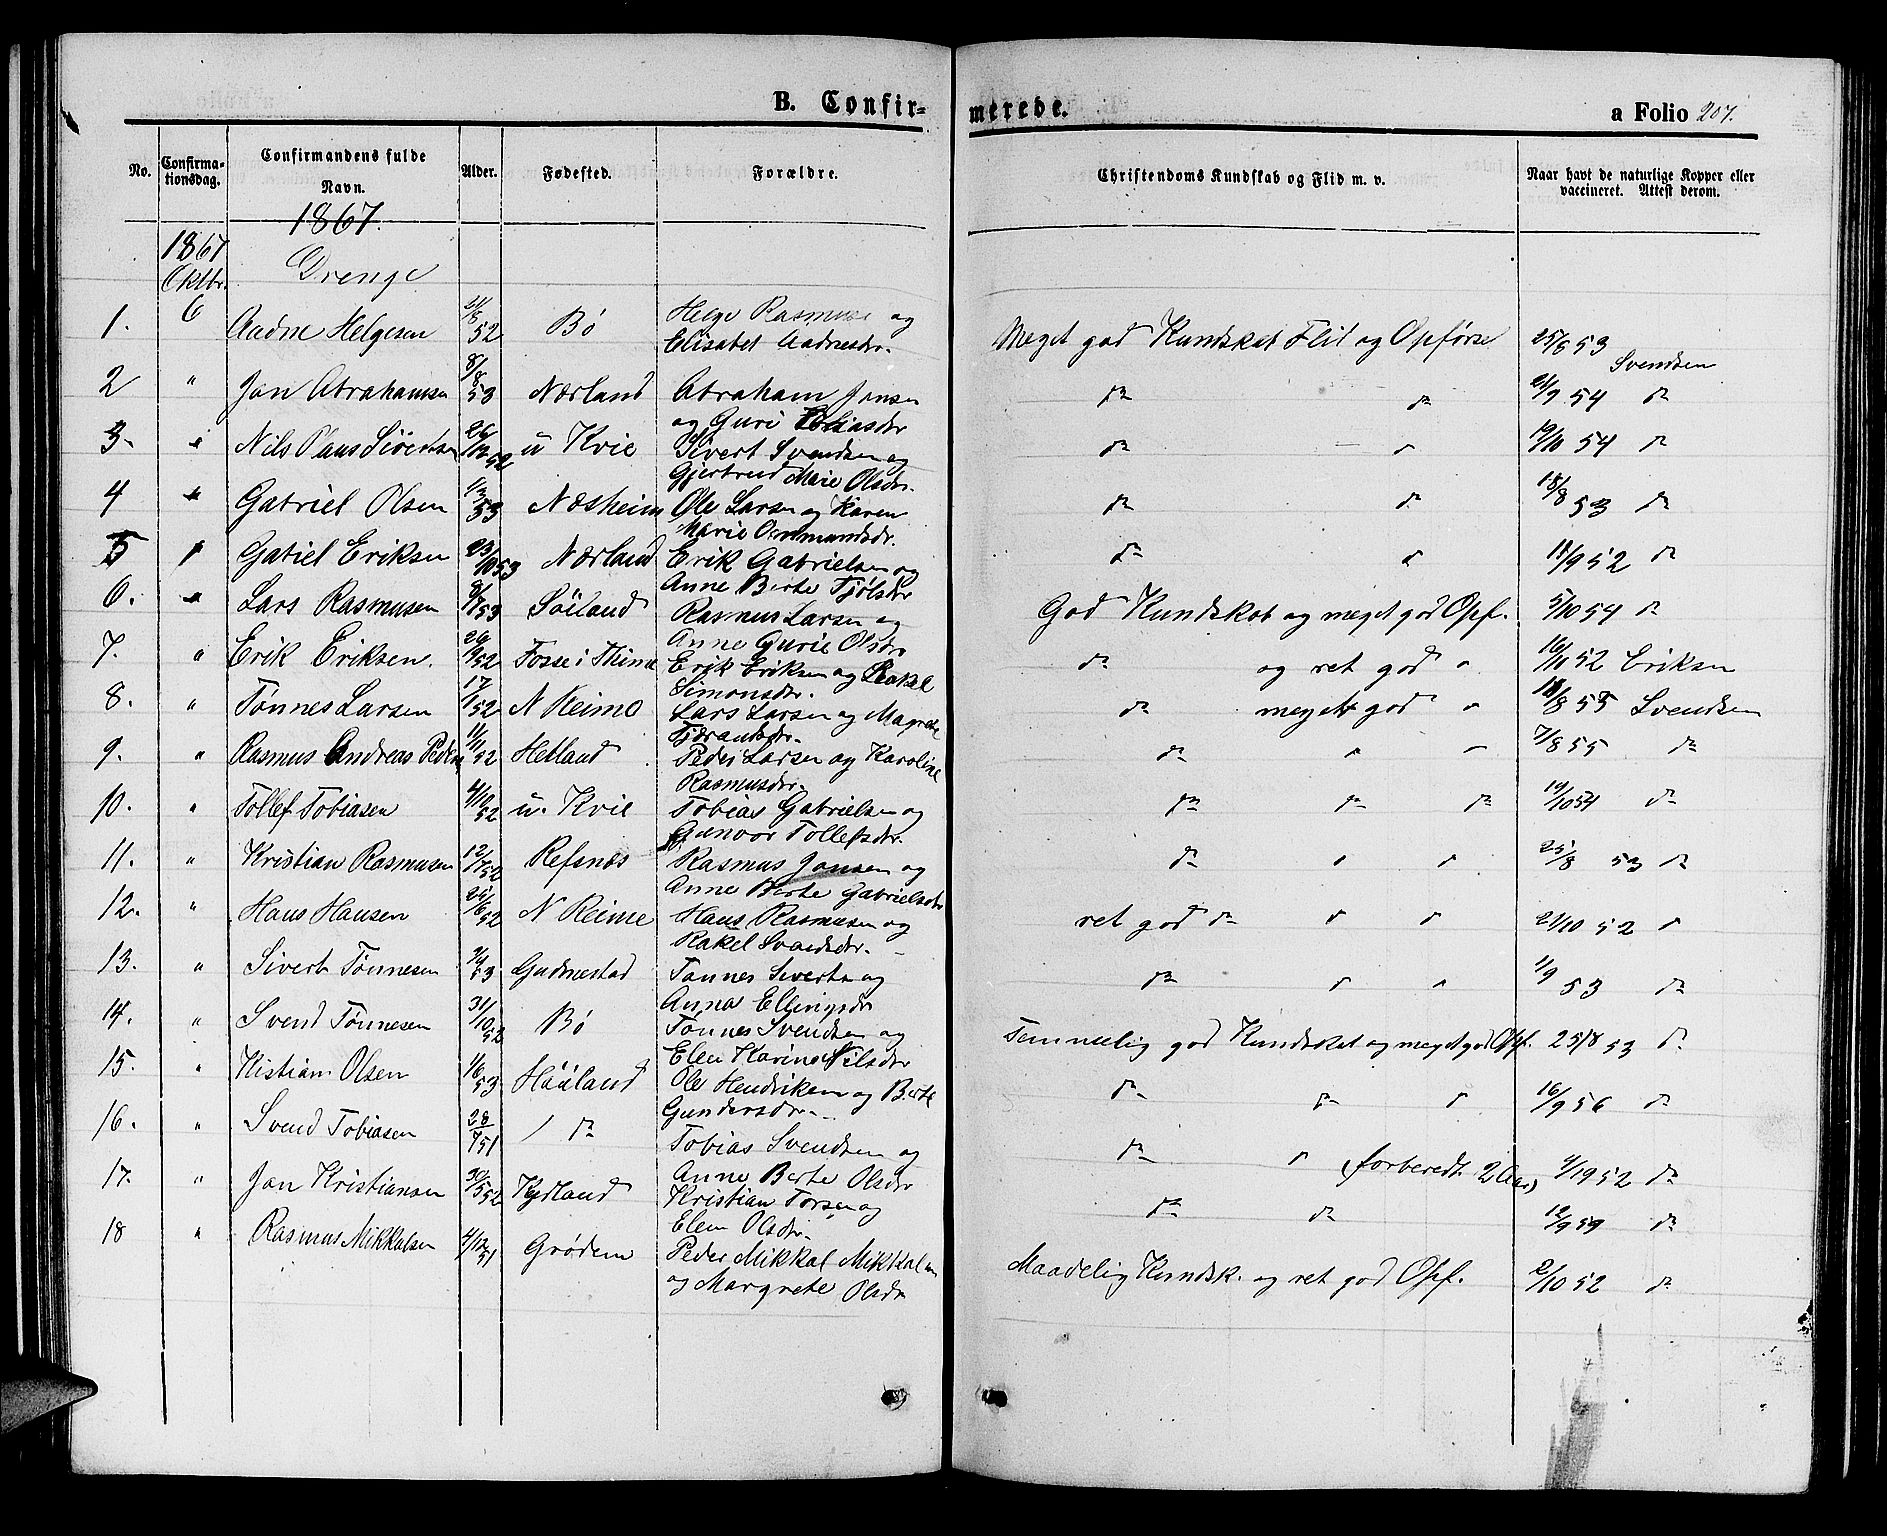 B. Confir-
merede.
a Folio 207.
No.
Confirma-
tionsdag.
Confirmandens fulde
Navn.
Alder.
Fødested.
Forældre.
Christendoms Kundskab og Flid m. v.
Naar havt de naturlige Kopper eller
vaccineret. Attest derom.
1867.
1867
Oktbr.
Drenge
1. 6 Aadne Helgesen 52 Bø Helge Rasmuse og
Elisabet Aadnesdr. Meget god Kundskab Flit og Opførse 25/6 53 Svendsen
2 " Jon Abrahamsen 8/8 53 Nærland Abraham Jonsen
og Guri dr dr 21/9 54 dr
3. " Nils Sivertsen 26/12 52 u Kvie Sivert Svendsen og
Gjertrud Marie Olsdr. dr " 19/10 54 dr
4 " Gabriel Olsen 1/3 53 Næsheim Ole Larsen og Karen
Marie Ommundsdr. dr dr 18/8 53 dr
5 " Gabiel Eriksen 23/10 53 Nærland Erik Gabrielsen og
Anne Berte Tjølsdr dr " 18/9 52 dr
6. " Lars Rasmusen 53 Søiland Rasmus Larsen og
Anne Gurie Olsdr God Kundskab og meget god Opf. 5/10 54 dr
7. " Erik Eriksen. 26/9 52 Fosse i Thime Erik Eriksen og Rakel
Simonsdr. dr og ret god " 16/11 52 Eriksen
8. " Tønnes Larsen 17/1 52 N Reime Lars Larsen og Magrete
dr meget god " 18/8 55 Svendsen
9. " Rasmus Andreas Peder 1/11 52 Hetland Peder Larsen og Karoline
Rasmusdr. dr " " 7/8 55 dr
10. " Tollef Tobiasen 4/10 52 u. Kvie Tobias Gabrielsen og
Gunvor Tollefsdr. dr dr dr 19/10 54 dr
11. " Kristian Rasmusen 12/7 52 Refsnes Rasmus Jonsen og
Anne Berte Gabrielsdr dr " " 25/8 53 dr
12. " Hans Hansen 25/6 52 N Reime Hans Rasmusen og
Rakel Svendsdr. ret god dr " " 21/10 52 "
13. " Sivert Tønnesen 53 Gudmestad Tønnes Sivertsn og
Anna Ellingsdr dr " " 1/9 53 dr
14. " Svend Tønnesen 31/10 52 Bø Tønnes Svendsen og
Elen Karine Nilsdr Temmelig god Kundskab og meget god Opf. 25/8 53 dr
15. " Kistian Olsen 1/6 53 Hååland Ole Hendriksen og Berte
Gundersdr. dr dr " 16/9 56 dr
16. " Svend Tobiasen 28/7 51 " dr Tobias Svendsen og
Anne Berte Olsdr dr " (forberedt 2 Aar) 4/19 52 dr
17. " Jon Kristiansen 30/5 52 Kydland Kristian Torsen og
Elen Olsdtr. dr dr 12/9 59 dr
18 " Rasmus Mikkalsen 4/12 51 Grødem Peder Mikkal Mikkalsen
og Margrete Olsdr Maadelig Kundsk. og ret god Opf. 2/10 52 dr